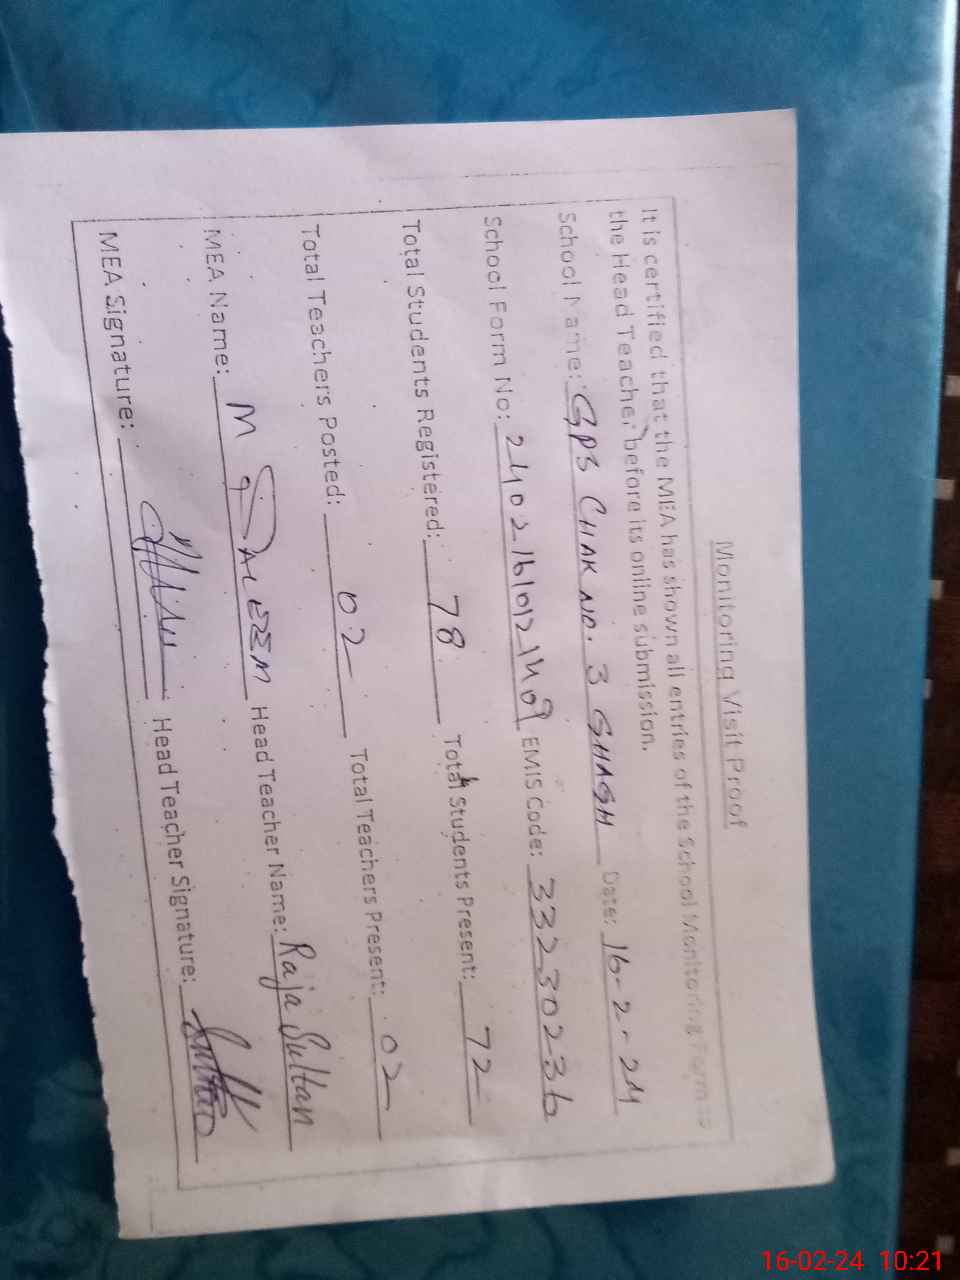 Monitoring Visit Proof
It is certified that the MEA has shown all entries of the School Monitoring Form to
the Head Teacher before its online submission.
School Name: GPS CHAK NO. 3 GHAGH Date: 16-2-24
School Form No: 24021610121409 EMIS Code: 33230236
Total Students Registered: 78 Total Students Present: 72
Total Teachers Posted: 02 Total Teachers Present: 02
MEA Name: M SALEEM Head Teacher Name: Raja Sultan
MEA Signature: Head Teacher Signature: Sultan
16-02-24 10:21